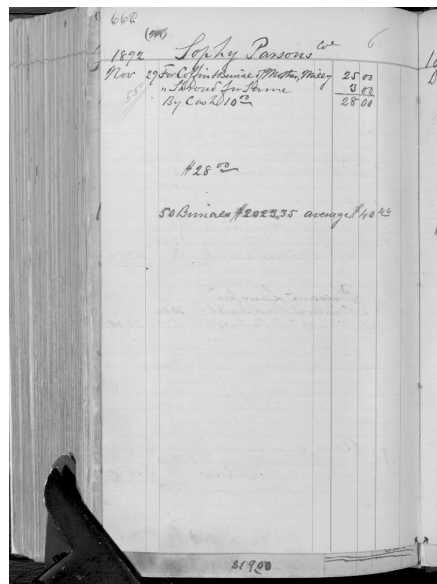 662
1892 Sophy Parsons Col 6
Nov 29 For Coffin & burial of Mother, Milly 25 00
" Shroud for Same 3 00
By Cash 10 00 28 00
$28 00
50 Burials $2023.35 average $40 46
21900